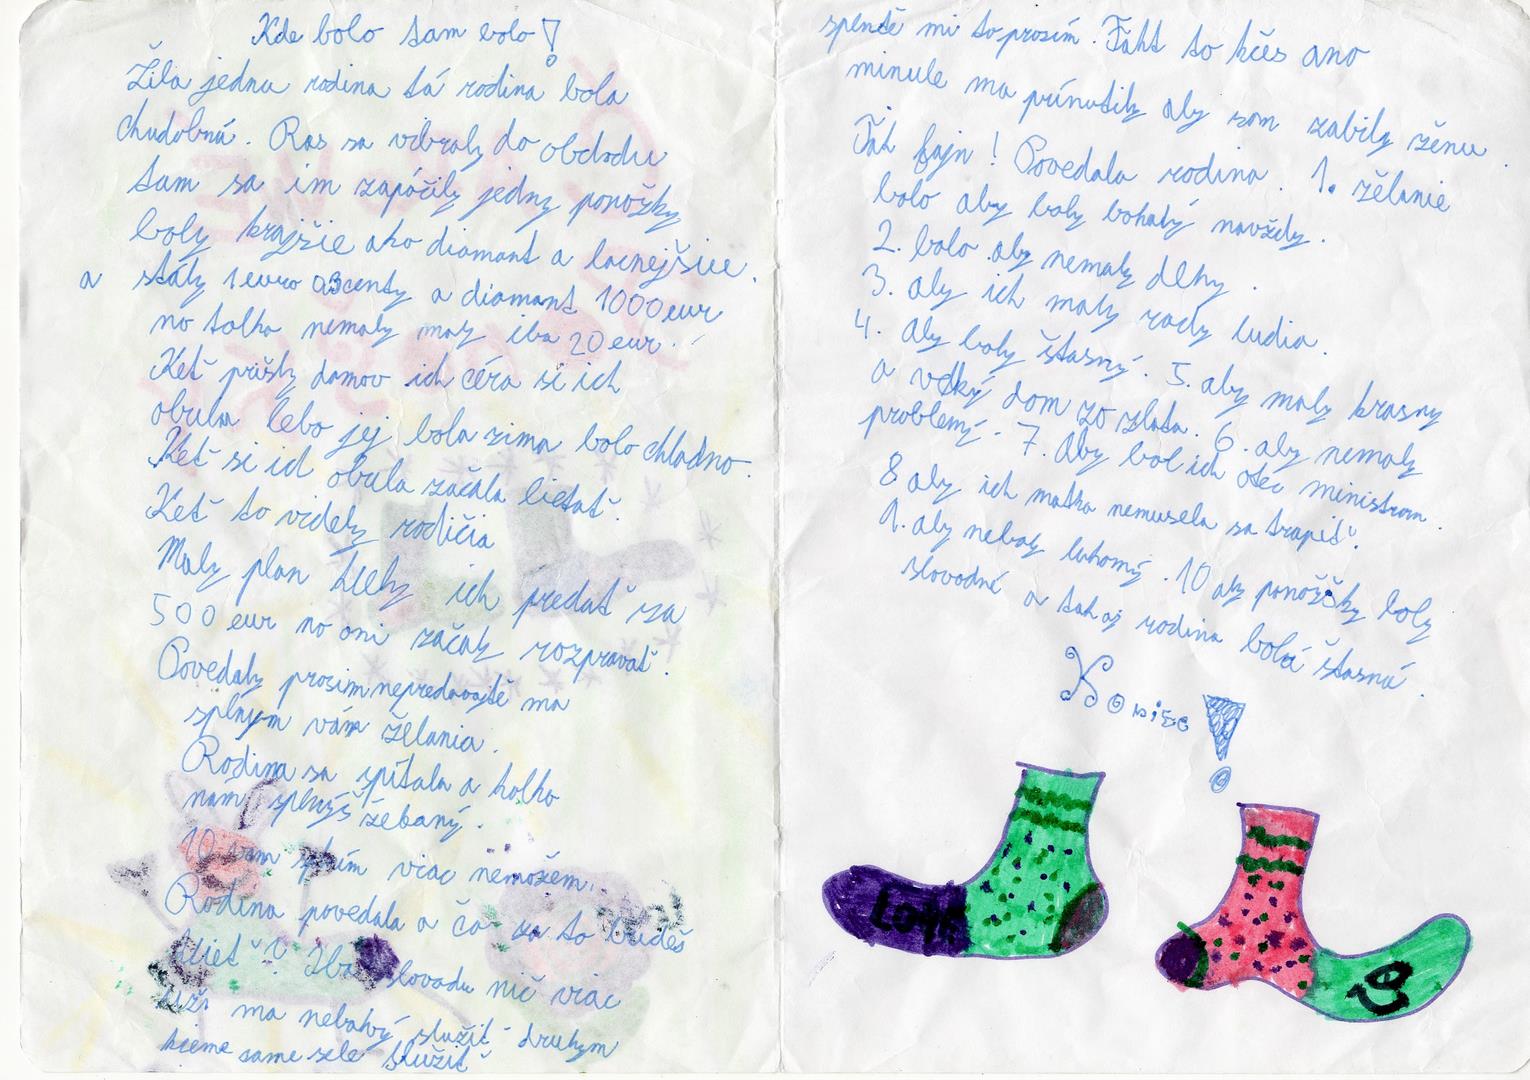 Kde bolo tam bolo!
Žila jedna rodina tá rodina bola
chudobná. Ras sa vibraly do obchodu
tam sa im zapáčily jedny ponožky
boly krajšie ako diamant a lacnejšie.
a stály 1 euro 03centy a diamant 1000 eur
no tolko nemaly maly iba 20 eur.
Keť prišly domov ich céra si ich
obula lebo jej bola zima bolo chladno.
Keť si ich obula začala lietať.
Keť to videly rodičia
Maly plan ich predať za
500 eur no oni začaly rozpravať.
Povedaly prosim nepredavajtě ma
splnym vám želania.
Rodina sa spítala a kolko
nám splnýš žebaný.
10 vam splním viac nemožem.
Rodina povedala a čo za to budeš
Iba slovodu nič viac
ma nebahvý služiť druhym
kceme same sebe služiť
splentě mi to prosím. Takt to kčes ano
minule ma prínutily aby som zabily ženu.
Tak fajn! Povedala rodina. 1. želanie
bolo aby boly bohatý navždy.
2. bolo aby nemaly dlhy.
3. aby ich maly rady ludia.
4. Aby boly štasný. 5. aby maly krasny
a velký dom zo zlata. 6. aby nemaly
problemý. 7. Aby bol ich otec ministrom.
8 aby ich matka nemusela sa trapiť.
9. aby neboly lakomý. 10 aby ponožky boly
slovodné a tak aj rodina bola štasná.
Koniec!
LOVE